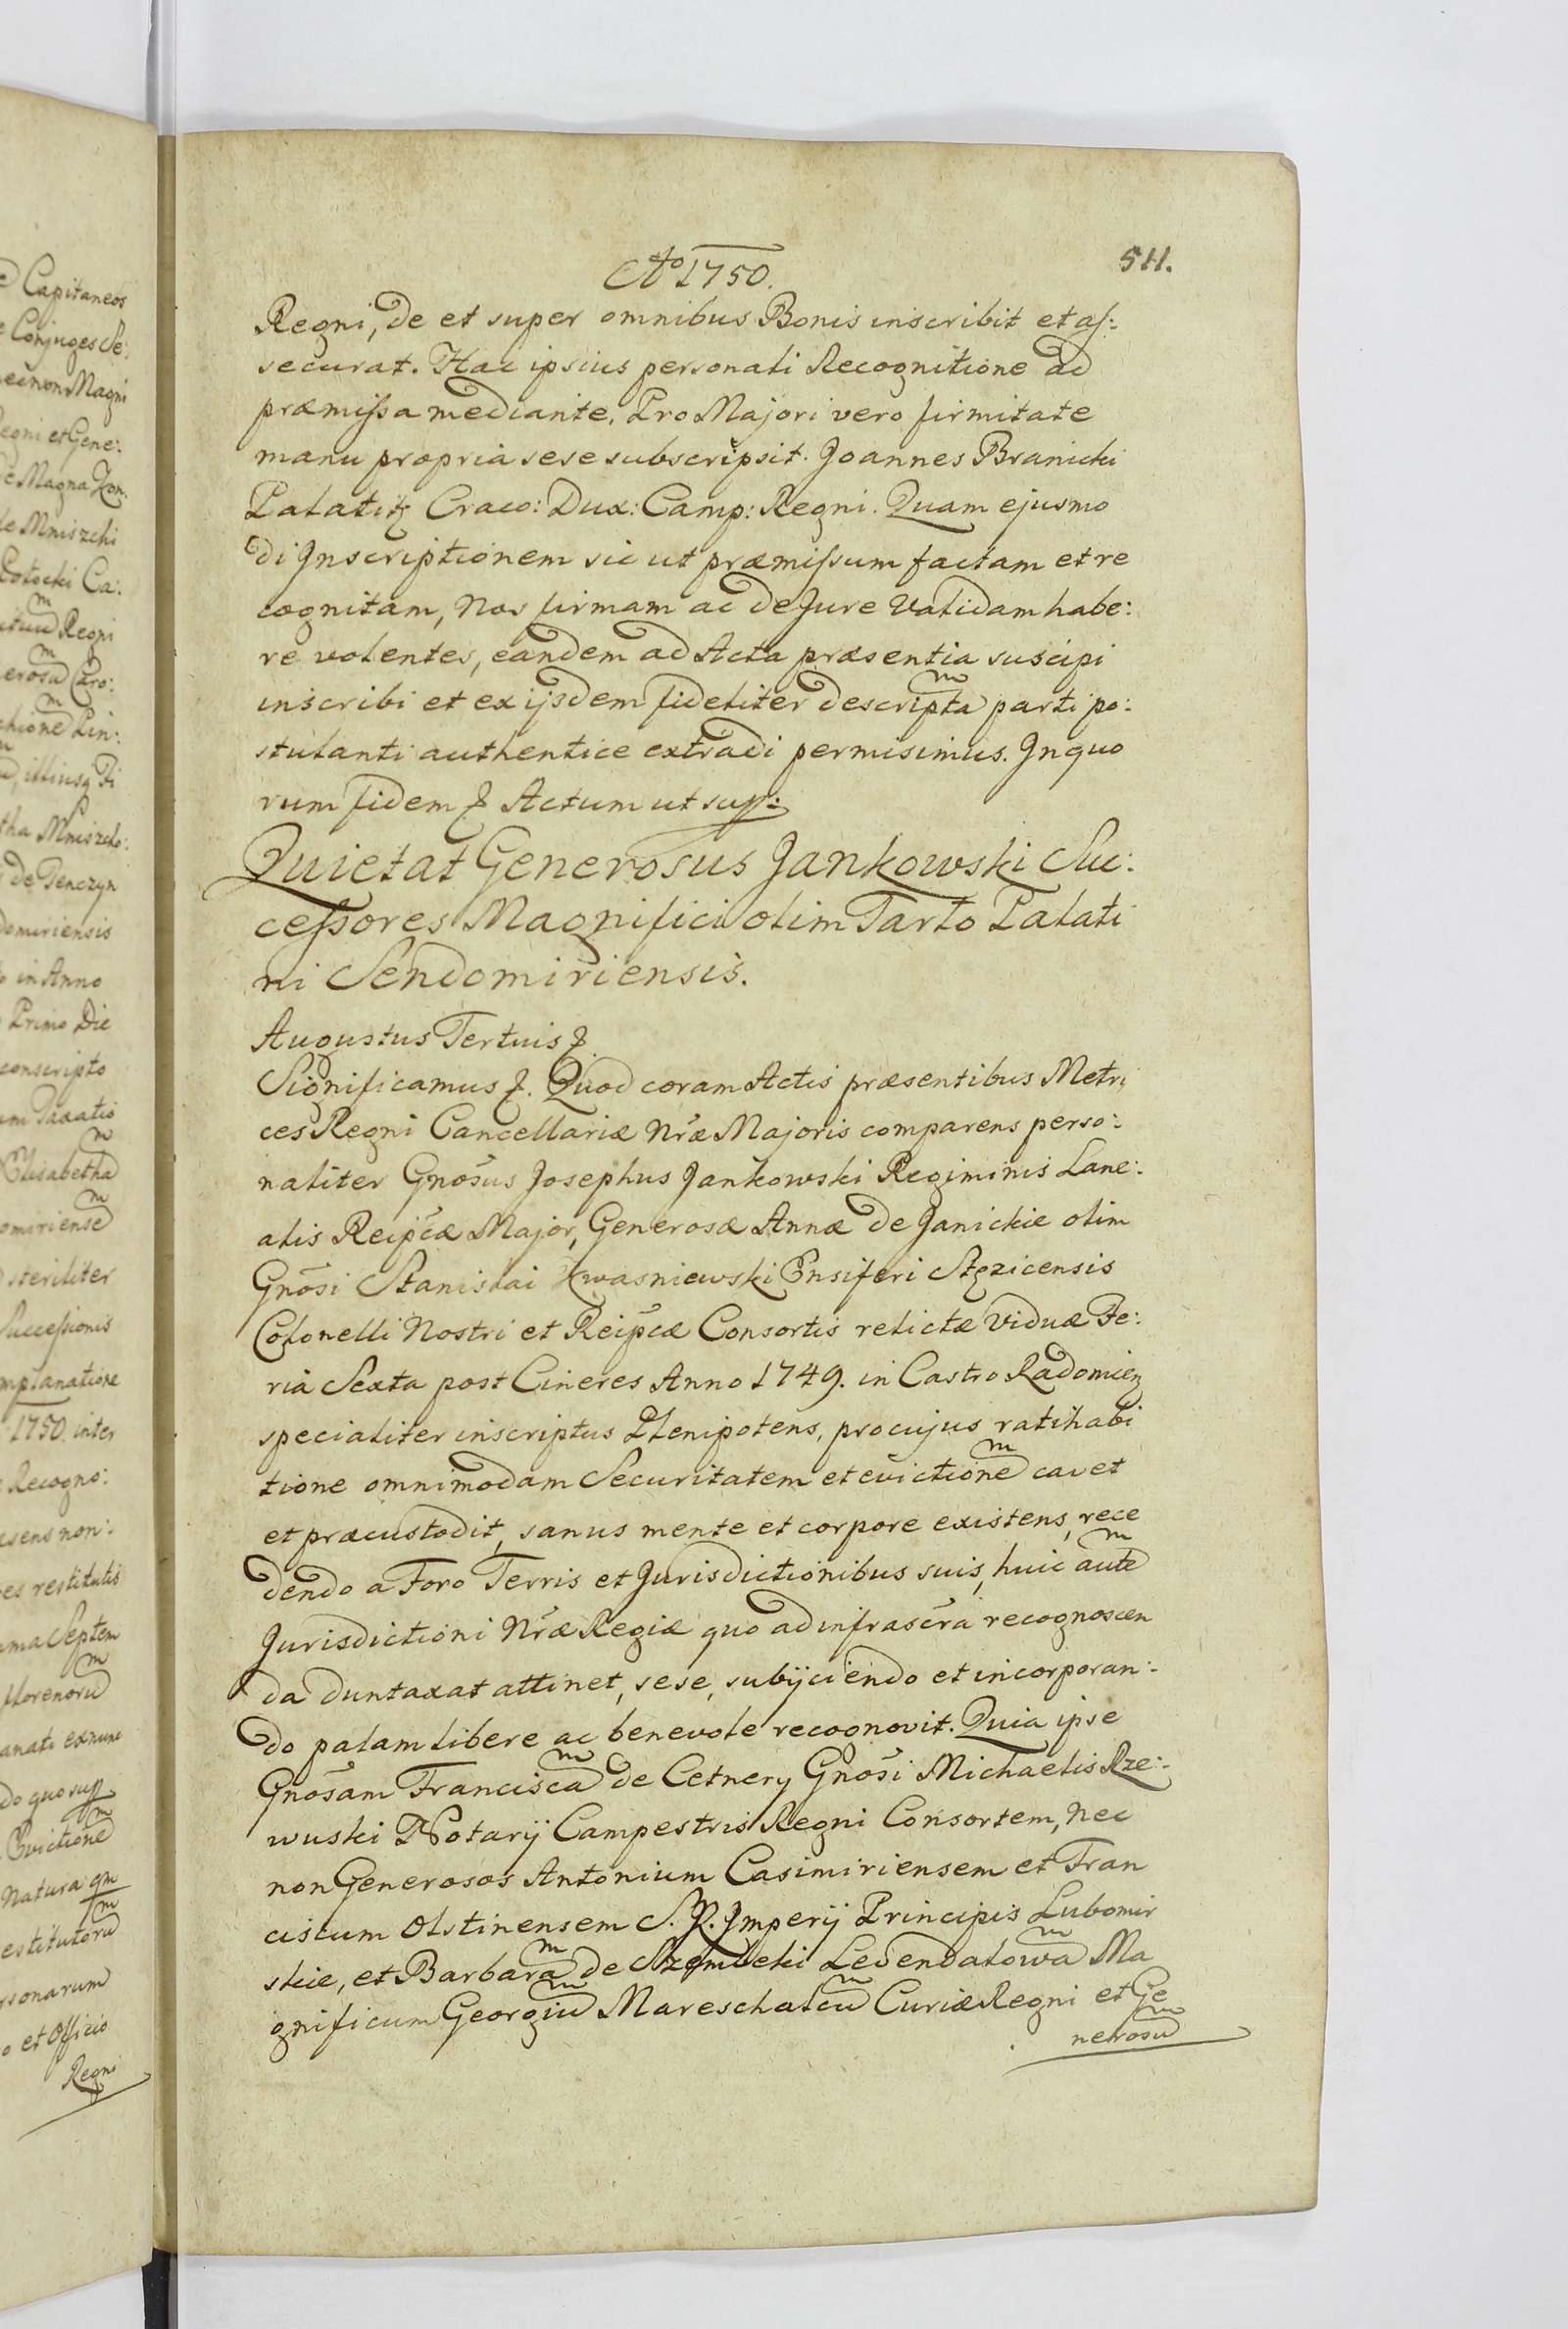 Capitaneos
Conjuges Se:
necnon Magni
Regni et Gene:
Magna Kon:
de Mniszchi
Potocki Ca:
Regni
in Anno
Primo Die
conscripto
Elisabetha
steriliter
Successionis
1750. inter
Recogno:
restitutis
Septem
florenorum
Evictionem
Natura
et Officio
Regni
Ao 1750.
511.
Regni, de et super omnibus Bonis inscribit et as:
securat. Hac ipsius personali Recognitione ad
præmissa mediante. Pro Majori vero firmitate
manu propria sese subscripsit. Joannes Branicki
Palatity Craco: Dux: Camp: Regni. Quam ejusmo
di Inscriptionem sic ut præmissum factam et re
cognitam, Nos firmam ac de Jure Validam habe:
re volentes, eandem ad Acta præsentia suscipi
inscribi et ex ijsdem fideliter descriptam parti po:
stulanti authentice extradi permisimus. In quo
rum fidem & Actum ut supp:
Quietat Generosus Jankowski Suc:
cessores Magnifici olim Tarło Palati
ni Sendomiriensis.
Augustus Tertuis &.
Significamus &. Quod coram Actis præsentibus Metri
ces Regni Cancellariæ Nræ Majoris comparens perso:
naliter Gnosus Josephus Jankowski Regiminis Lane:
alis Reipcæ Major, Generosæ Annæ de Janickie olim
Gnosi Stanislai Kwasniewski Ensiferi Stęzicensis
Colonelli Nostri et Reipcæ Consortis relictæ Viduæ Fe:
ria Sexta post Cineres Anno 1749. in Castro Radomien
specialiter inscriptus Plenipotens, pro cujus ratihabi
tione omnimodam Securitatem et evictionem cavet
et præcustodit, sanus mente et corpore existens, rece
dendo a Foro Terris et Jurisdictionibus suis, huic autem
Jurisdictioni Nræ Regiæ quo ad infrascra recognoscen
da duntaxat attinet, sese, subijciendo et incorporan:
do palam libere ac benevole recognovit. Quia ipse
Gnosam Franciscam de Cetnery Gnosi Michaelis Rze:
wuski Notarij Campestris Regni Consortem, nec
non Generosos Antonium Casimiriensem et Fran
ciscum Olstinensem S. R. Imperij Principis Lubomir
skie, et Barbaram de Szembeki Ledendałowam Ma
gnificum Georgium Mareschalcum Curiæ Regni et Ge
nerosum